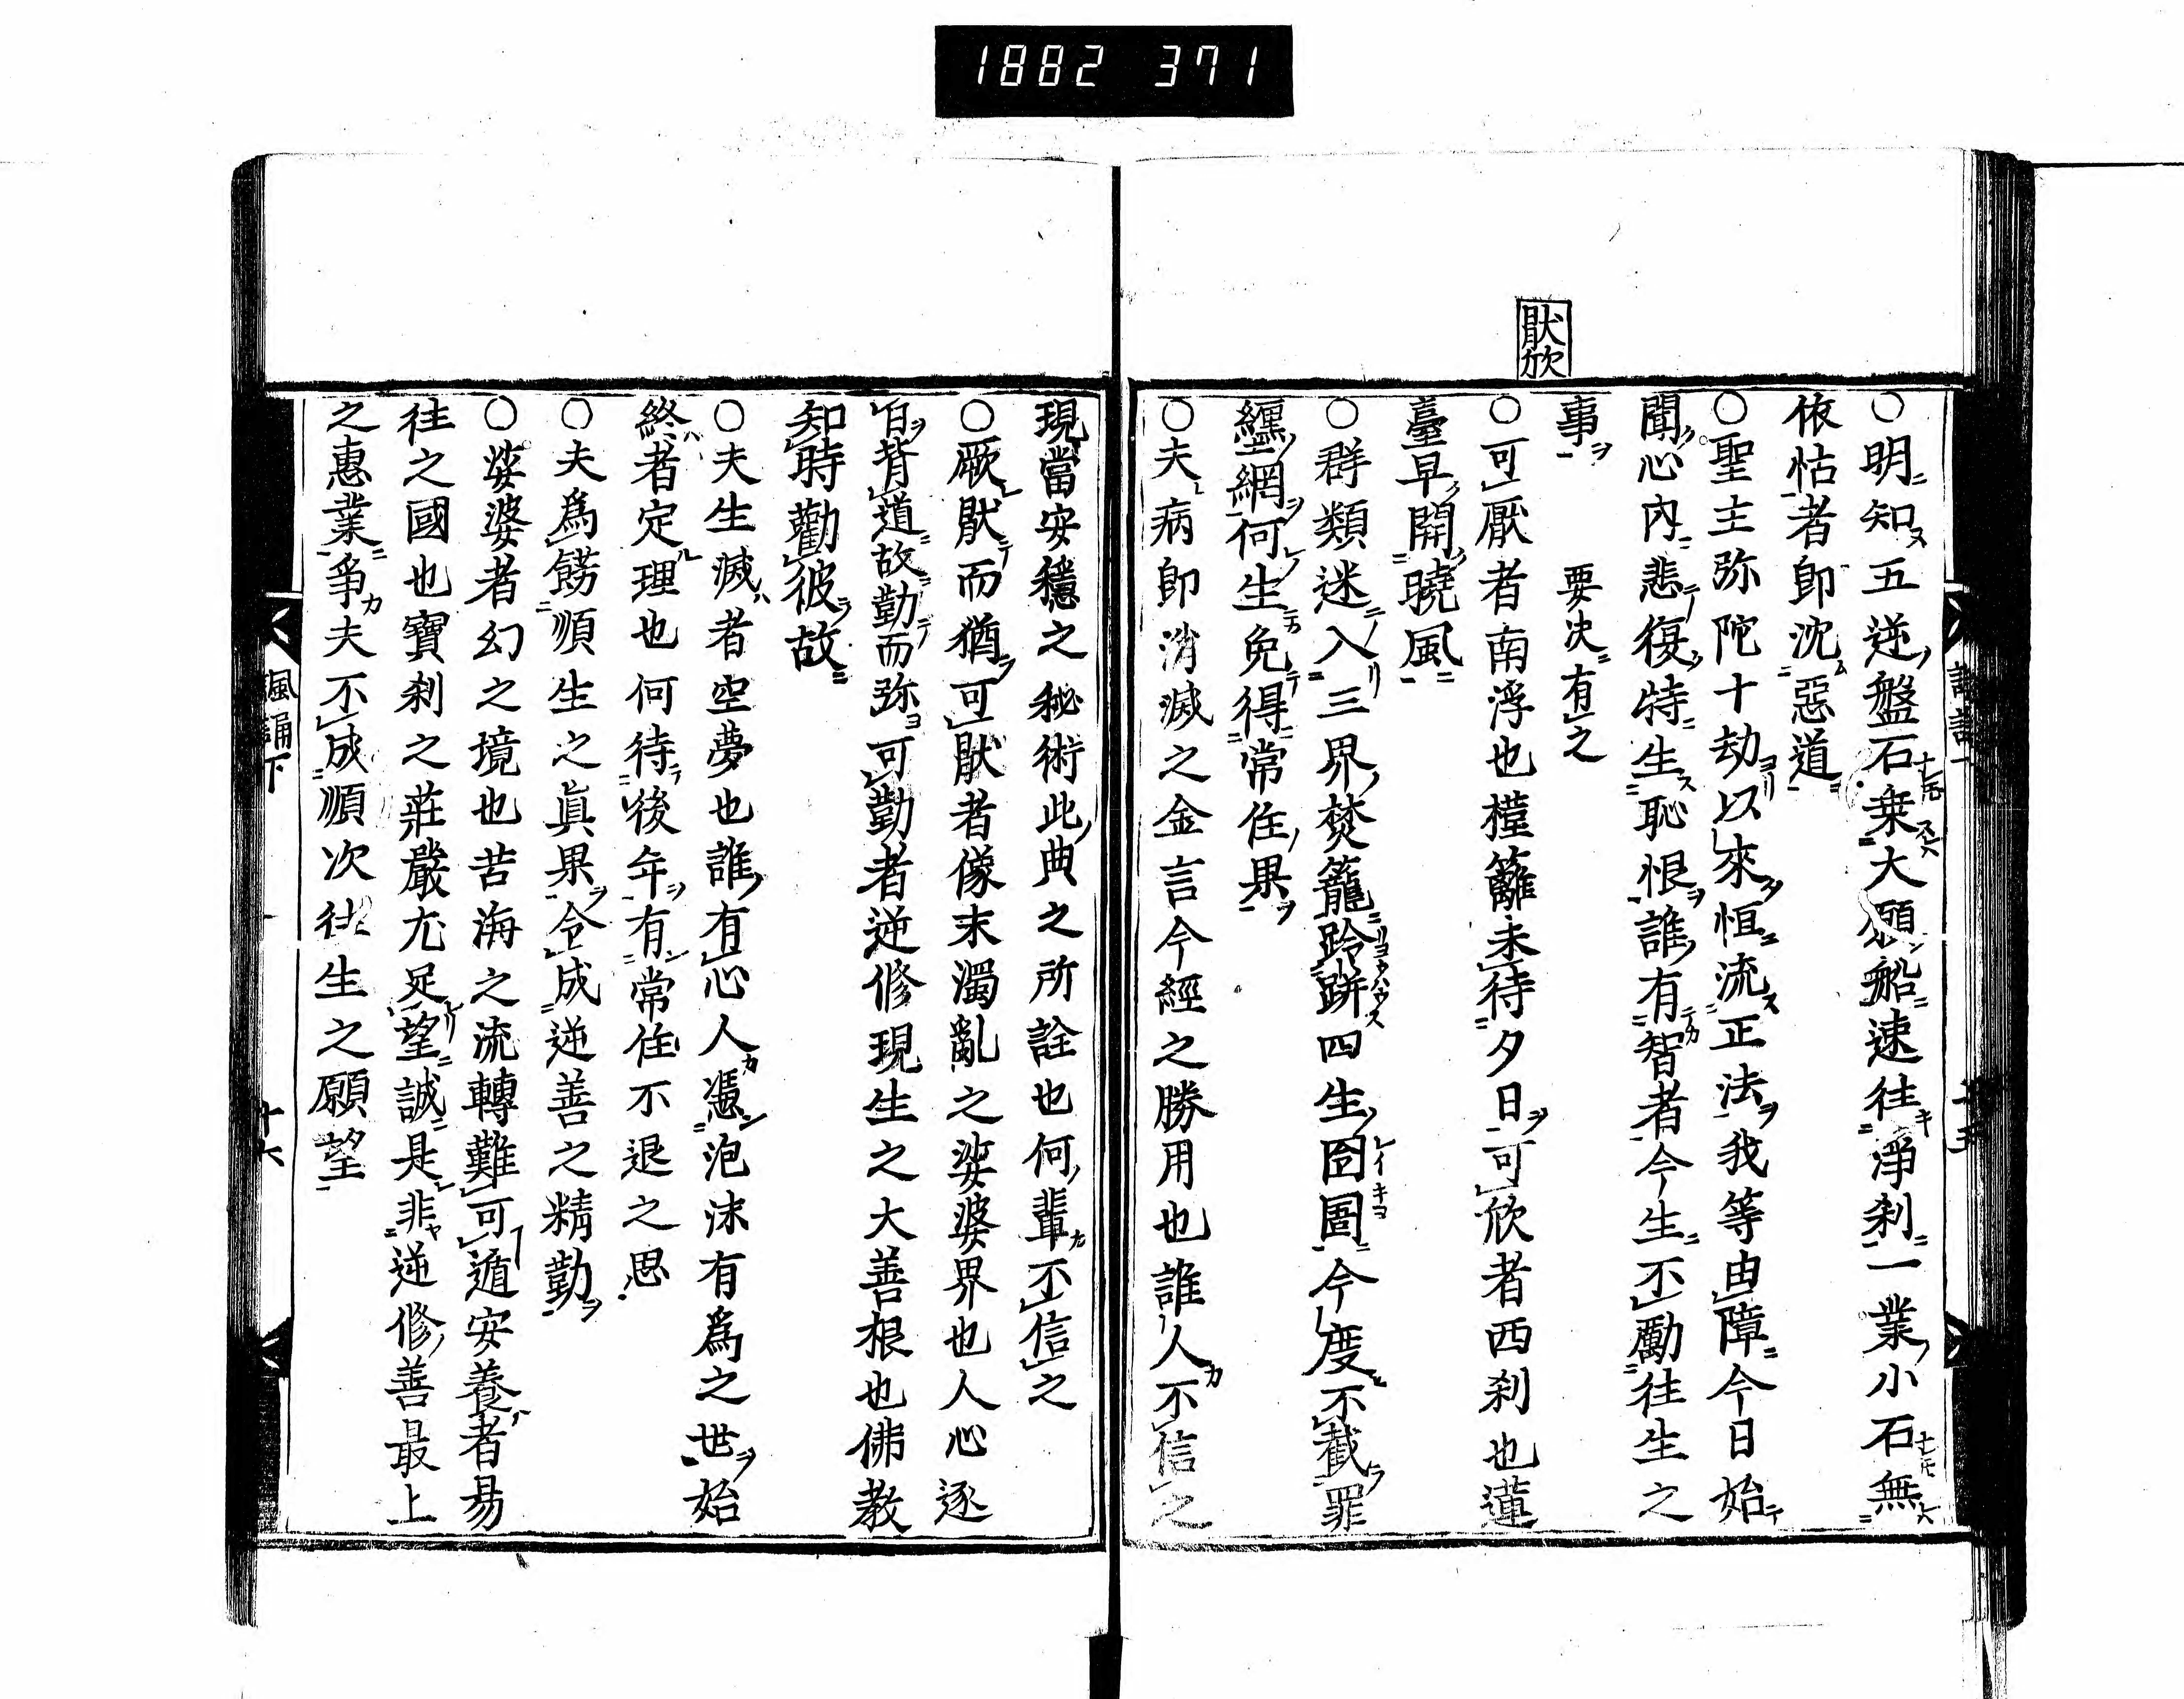 1882 371
猒欣
○明知五逆盤石乗大願船速往淨刹一業小石無
依怙者即沈惡道
○聖主弥陀十劫以來恒流正法我等由障今日始
聞心内悲復特生恥恨誰有智者今生不勵往生之
事 要决有之
○可厭者南浮也槿籬未待夕日可欣者西刹也蓮
臺早開曉風
○群類迷入三界樊籠跉跰四生囹圄今度不截罪
纒網何生免得常住果
○夫病即消滅之金言今經之勝用也誰人不信之
現當安穩之秘術此典之所詮也何輩不信之
○厭猒而猶可猒者像末濁亂之娑婆界也人心逐
日背道故勤而弥可勤者逆修現生之大善根也佛教
知時勸彼故
○夫生滅者空夢也誰有心人憑泡沫有為之世始
終者定理也何待後年有常住不退之思
○夫為餝順生之眞果令成逆善之精勤
○娑婆者幻之境也苦海之流轉難可遁安養者易
往之國也寶刹之莊嚴尤足望誠是非逆修善最上
之惠業爭夫不成順次往生之願望
諷誦下
十六